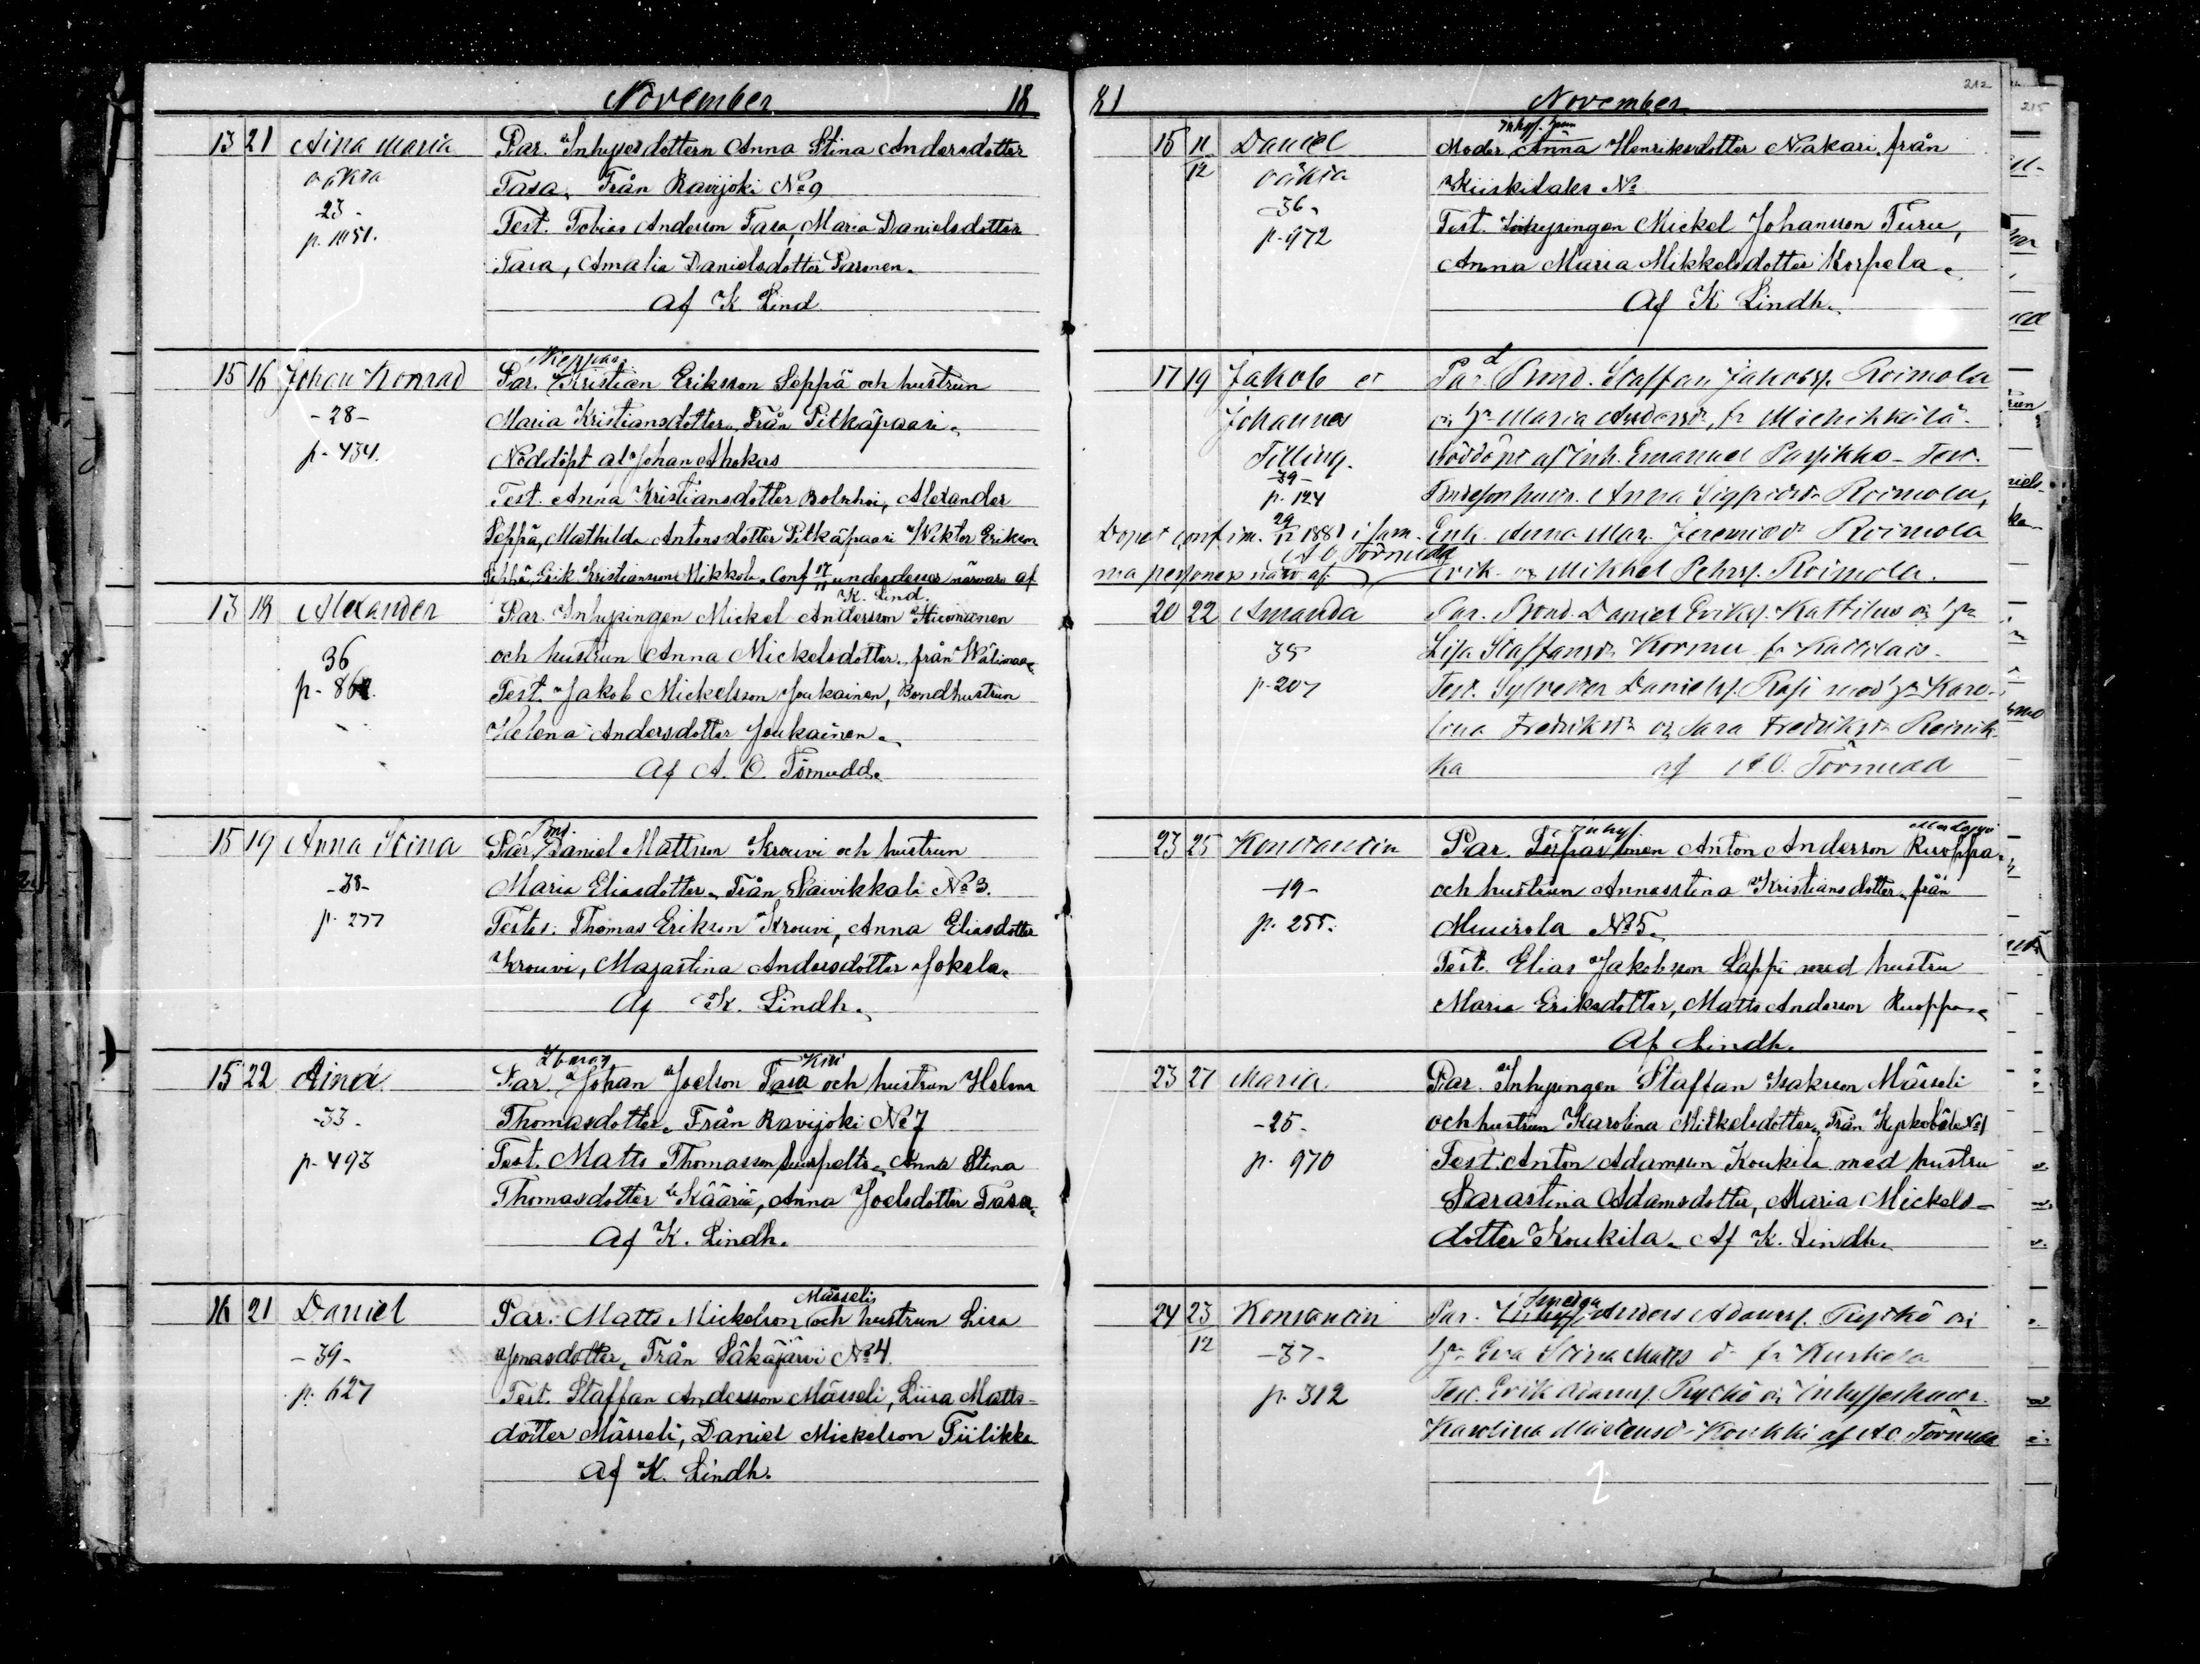 November 18
13 21 Aina Maria Par. Inhysesdottern Anna Stina Andersdotter
oäkta Tasa, Från Ravijoki No 9
23- Test. Tobias Andersson Tasa, Maria Danielsdotter
p. 1051. Tasa, Amalia Danielsdotter Paronen.
Af K. Lind
15 16 Johan Konrad Par. Kristian Eriksson Seppä och hustrun
-28- Maria Kristiansdotter, Från Pitkäpaasi.
p. 434. Nöddöpt af Johan Ahokas
Test. Anna Kristiansdotter, Alexander
Seppä, Mathilda Antonsdotter Pitkäpaasi Wiktor Erikson
Seppä, Erik Kristiansson Mikkola. Conf 17/11 undertecknad närvaro af
K. Lind.
13 18 Alexander Par. Inhysingen Mickel Andersson
36 och hustrun Anna Mickelsdotter, från Wälimaa
p. 86 Test. Jakob Mickelsson Joukainen, Bondhustrun
Helena Andersdotter Joukainen.
Af A. O. Törnudd.
Bond.
15 19 Anna Stina Par. Daniel Mattsson Krouvi och hustrun
-38- Maria Eliasdotter, Från Säivikkälä No 3.
p. 277 Testes. Thomas Erikson Krouvi, Anna Eliasdotter
Krouvi, Majastina Andersdotter Jokela.
Af K. Lindh.
Kiri
15 22 Aina Par. Johan Joelson Tasa och hustrun Helena
-33. Thomasdotter, Från Ravijoki No 7
p. 493 Test. Matts Thomasson Suurpelto, Anna Stina
Thomasdotter Kääriä, Anna Joelsdotter Tasa
Af K. Lindh.
Mässeli
16 21 Daniel Par. Matts Mickelson och hustrun Lisa
-39- Jonasdotter, Från Säkäjärvi No 4.
p. 627 Test. Staffan Andersson Mässeli, Liisa Matts-
dotter Mässeli, Daniel Mickelson Tiilikka
Af K. Lindh.
81 November 212
15 11 Daniel Moder, Anna Henriksdotter Nakari, från
12 oäkta Kiiskilaks No
-36- Test. Inhysingen Mickel Johansson Turu,
p. 972 Anna Maria Mikkelsdotter Korpela.
Af K Lindh.
17 19 Jakob et Par. Bond. Staffan Jakobss. Roimola
Johannes o h:u Maria Andersd:r, fr Miehikkälä.
Tilling. Nöddöpt af Inh. Emanuel Parsikko - Test.
-39-
p. 124 Anna Sigfridsd:r Roimola,
Dopet conf im. 29/12 1881 i sam- Enk. Anna Mar. Jeremiasd:r Roimola
A O Törnudd
ma personers närv. af Erik och Mikkel Pehrss. Roimola.
20 22 Amanda Par. Bond. Daniel Erikss. Kattilus o h:u
35 Lisa Staffansd:r Kormu fr Kattilais.
p. 207 Test. Sylvester Daniels. Rasi med h:u Karo-
lina Fredriksd:r o Sara Fredriksd:r Reinik-
ka af A O. Törnudd
inhys
23 25 Konstantin Par. Anton Anderson Ruoppa
-19- och hustrun Annastina Kristiansdotter, från
p. 255. Muurola No 5.
Test. Elias Jakobsson Lappi med hustru
Maria Eriksdotter, Matts Anderson Ruoppa
Af Lindh.
23 27 Maria Par. Inhysingen Staffan Isaksson Mässeli
-25- och hustrun Karolina Mikkelsdotter, Från No 1
p. 970 Test. Anton Adamson Koukila med hustru
Sarastina Adamsdotter, Maria Mickels-
dotter Koukila. Af K. Lindh.
Smeden
24 23 Konstantin Par. Inhys. Anders Adamss. Ryökö o
12 -37- h:u Eva Stina Matts d. fr Kuskela
p. 312 Test. Erik Adamss. Ryökö o Inhysehustr.
Karolina Koukki af A O. Törnudd